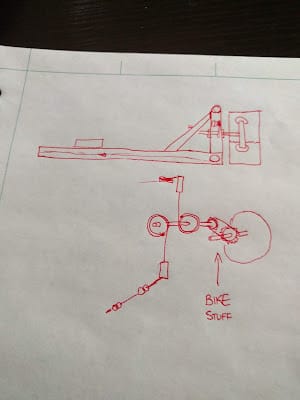 B
BIKE
STUFF